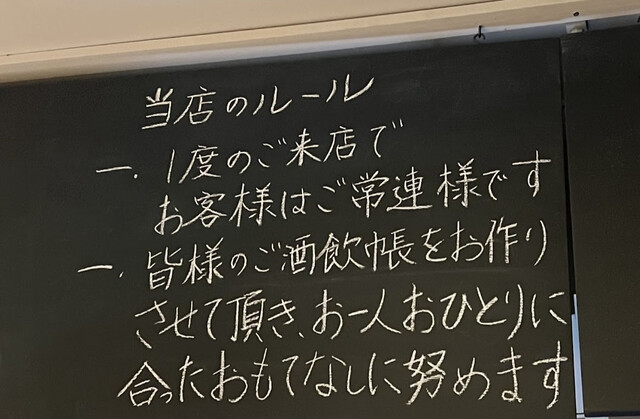 当店のルール
一. 1度のご来店で
お客様はご常連様です
一. 皆様のご酒飲帳をお作り
させて頂き、お一人おひとりに
合ったおもてなしに努めます